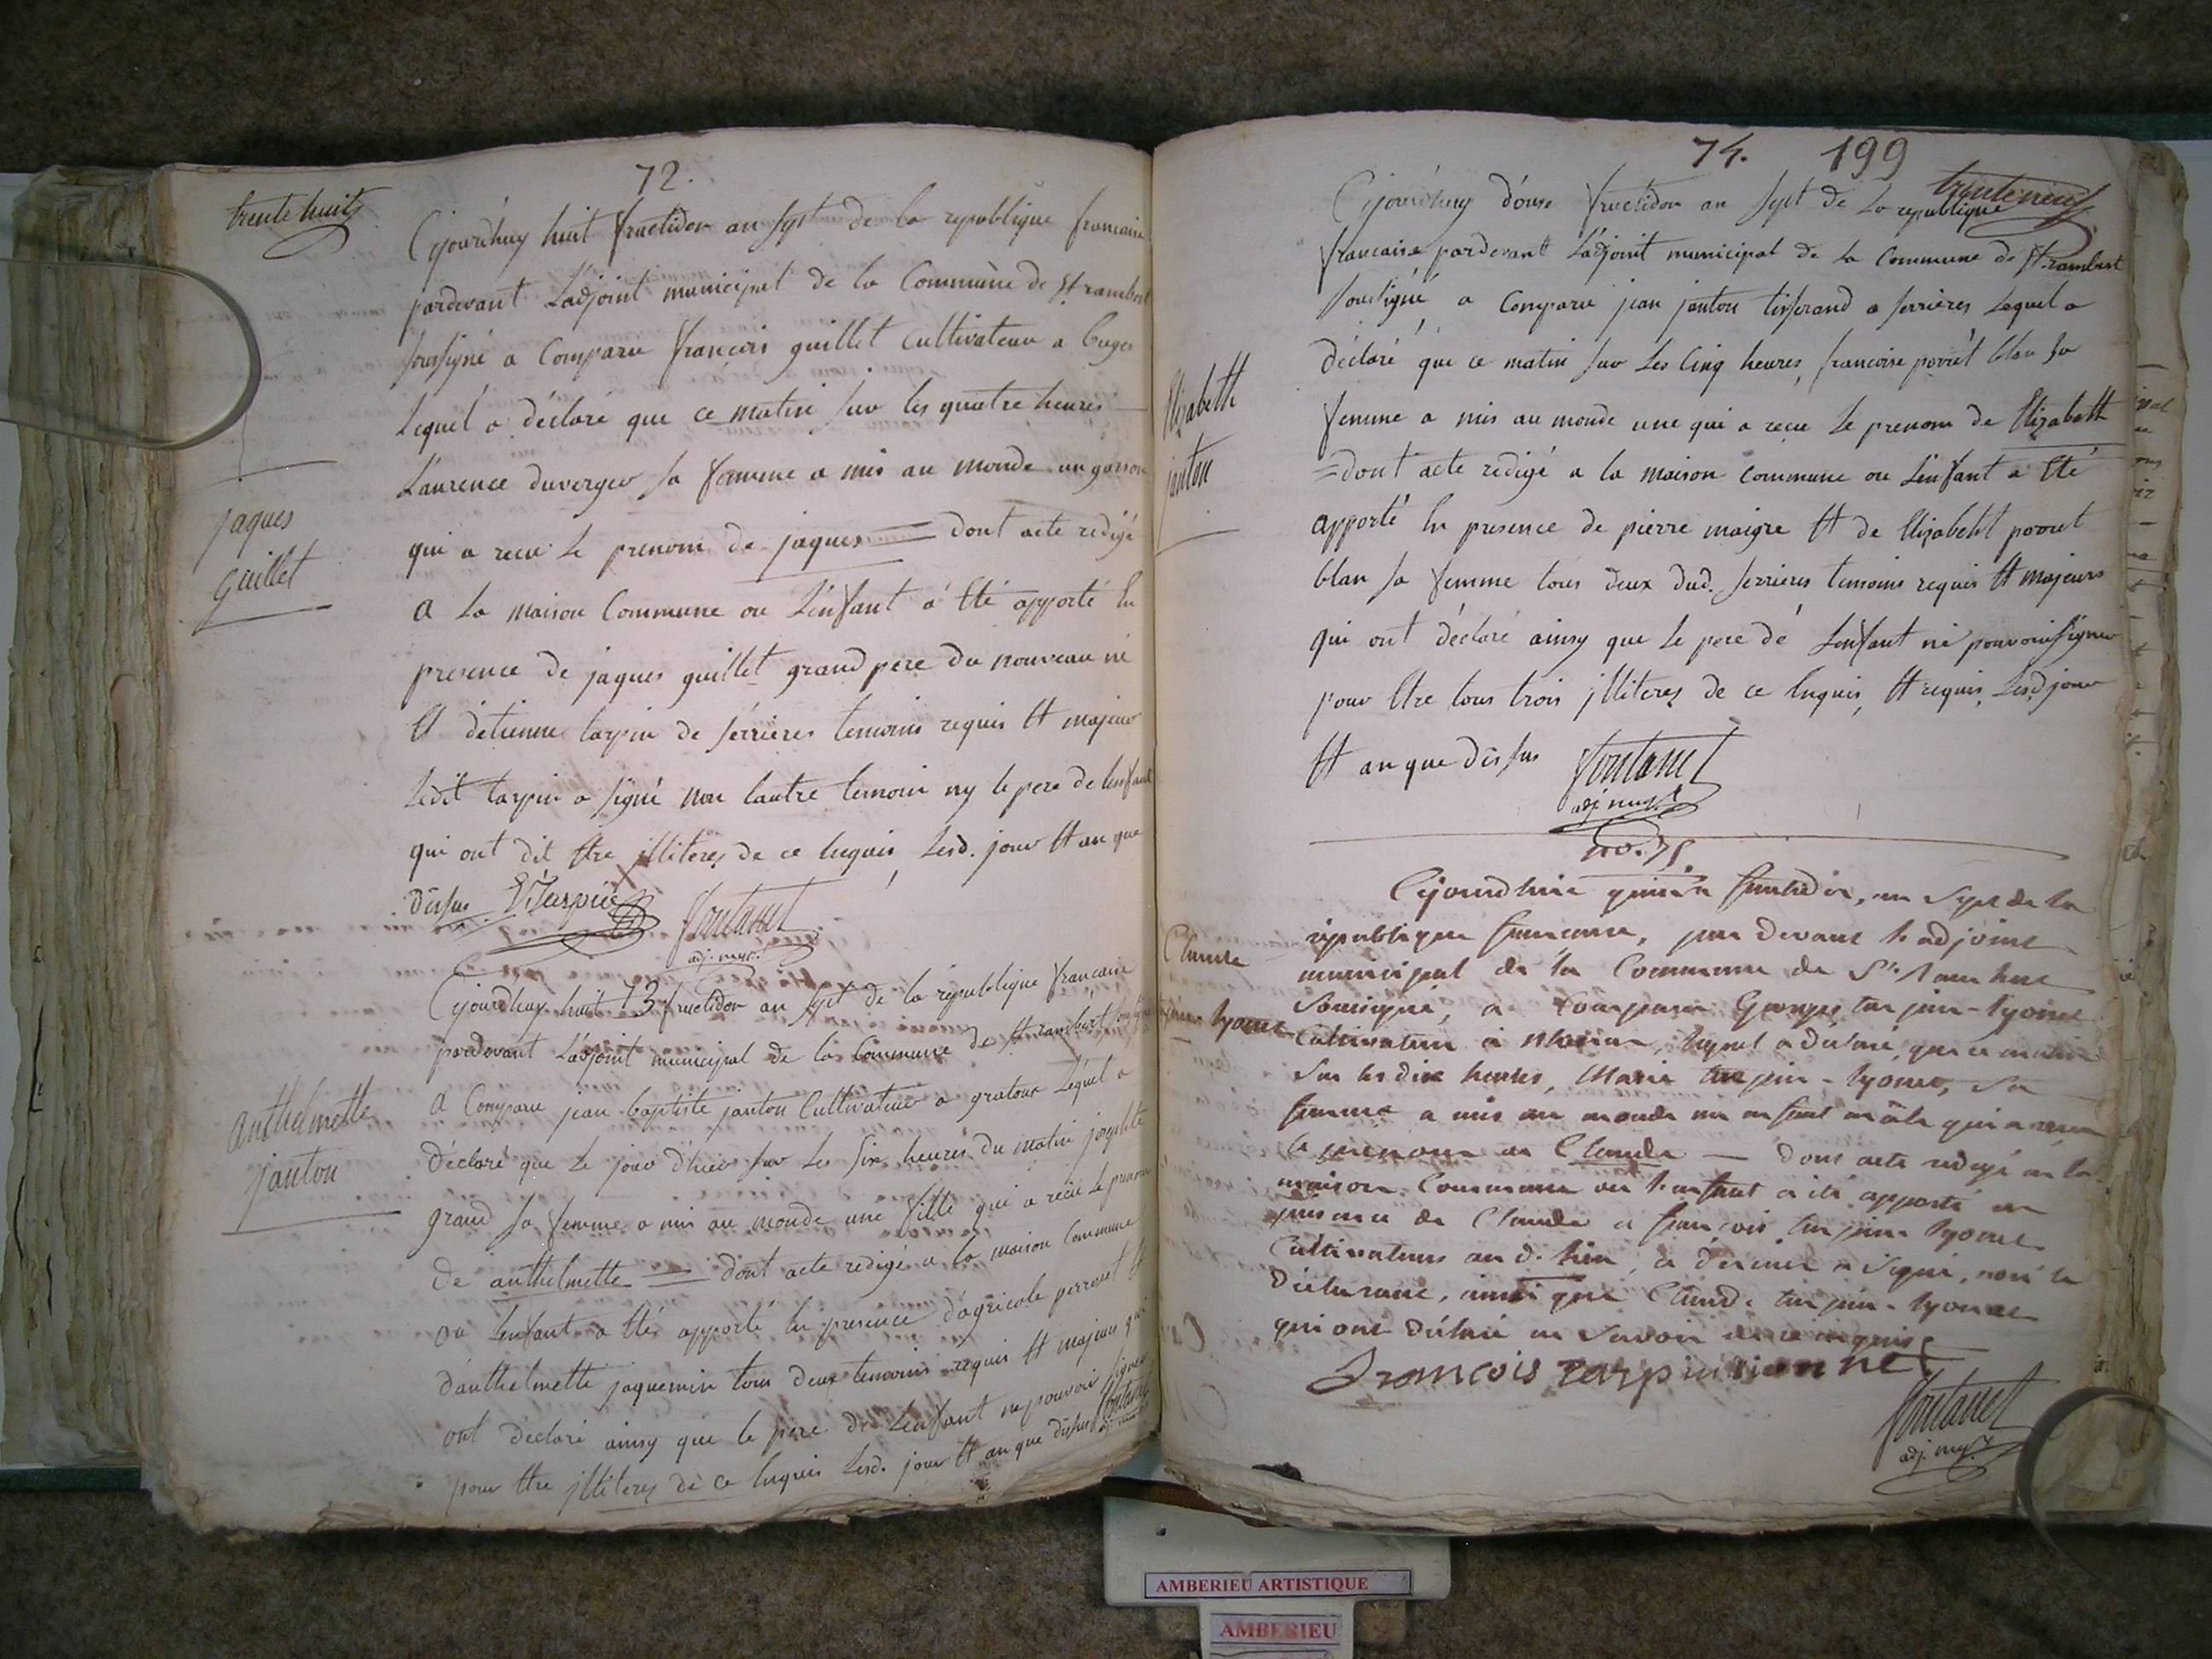 72.
trente huit
Cejourdhuy huit fructidor an sept de la republique francaise
pardevant L'adjoint municipal de la Commune de St rambert
soussigné a Comparu françois guillet cultivateur a
Lequel a déclaré que ce matin sur les quatre heures
Laurence duverger sa femme a mis au monde un garson
qui a recu le prenom de jaques dont acte redigé
jaques
guillet
a La maison Commune ou L'enfant a Eté apporté En
presence de jaques guillet grand pere du nouveau né
Et détienne tarpin de serrieres temoins requis Et majeur
Ledit tarpin a signé non lautre temoin ny le pere de lenfant
qui ont dit Etre jlliterez de ce Enquis Lesd. jour Et an que
dessus E Tarpin fontanel
adj. mup.
73
Cejourdhuy huit fructidor an sept de la republique francaise
pardevant L'adjoint municipal de la Commune de St rambert soussigné
a Comparu jean baptiste janton Cultivateur a gratoux Lequel a
anthelmette
janton
déclaré que Le jour d'hier sur Les six heures du matin
grand sa femme a mis au monde une fille qui a recu Le prenom
de anthelmette dont acte redigé a la maison Commune
ou Lenfant a Eté apporté En presence d'agricole perroset Et
d'anthelmette jaquemin tous deux temoins requis Et majeurs qui
ont declaré ainsy que le pere de Lenfant ne pouvoir signer
pour Etre jlliterez de ce Enquis Lesd. jour Et an que dessus fontanel
74. 199
trente neuf
Cejourdhuy douse fructidor an sept de La republique
francaise pardevant L'adjoint municipal de La Commune de St rambert
soussigné a Comparu jean janton tisserand a serrières Lequel a
déclaré que ce matin sur Les Cinq heures, francoise porret blan sa
Elizabeth
janton
femme a mis au monde une qui a recu Le prenom de Elizabeth
dont acte redigé a la maison commune ou L'enfant a Eté
apporté En presence de pierre maigre Et de Elizabeht porret
blan sa femme tous deux dud. serrieres temoins requis Et majeurs
qui ont déclaré ainsy que le pere de Lenfant ne pouvoir signer
pour Etre tous trois jlliterez de ce Enquis, Et requis, Lesd jour
Et an que dessus fontanel
adj mup.l
no. 75
Cejourdhui quinze fructidor, an Sept de la
republique francaise, par devant L'adjoint
Claude
municipal de la Commune de St. Rambert
Soussigné, a Comparu Georges tarpin-lyonet
tarpin-lyonet
Cultivateur a, lequel a déclaré, que ce matin
Sur les dix heures, Marie tarpin-lyonet, sa
femme a mis au monde un enfant mâle qui a recu
le prenom de Claude — dont acte redigé en la
maison Commune ou L'enfant a été apporté en
presence de Claude et francois tarpin lyonet
Cultivateurs au d. lieu, ce dernier a signé, non le
déclarant, ainsi que Claude tarpin-lyonet
qui ont déclaré ne savoir de ce enquis
Francois Tarpin lionnet
fontanel
adj. mup.l
AMBERIEU ARTISTIQUE
AMBERIEU